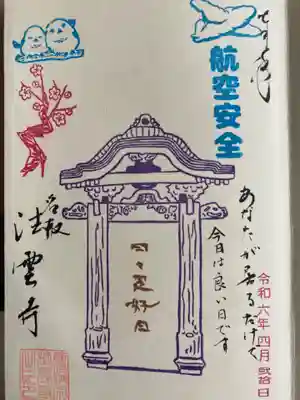 令和六年四月弐拾日
あなたが居るだけで
今日は良い日です
航空安全
日々是好日
名取
法雲寺